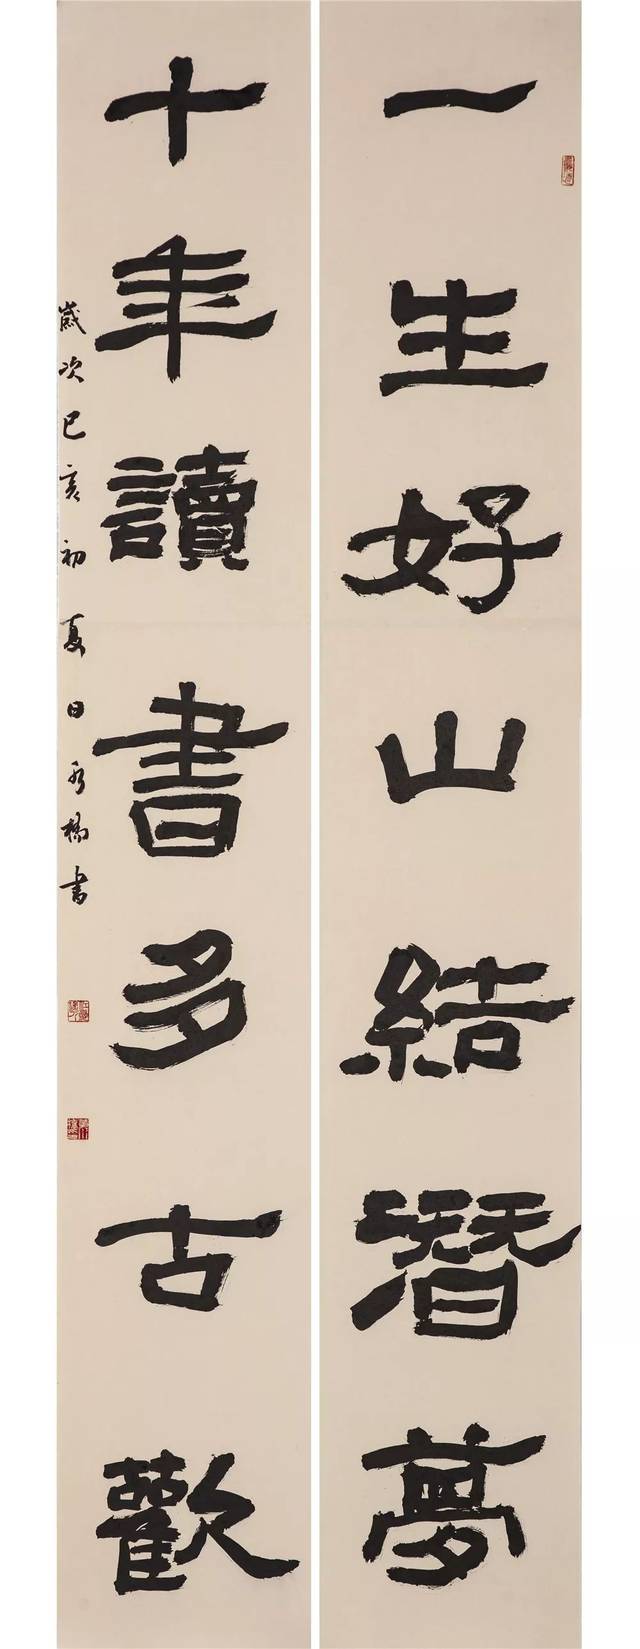 一生好山結潛夢
十年讀書多古歡
歲次己亥初夏日永橋書